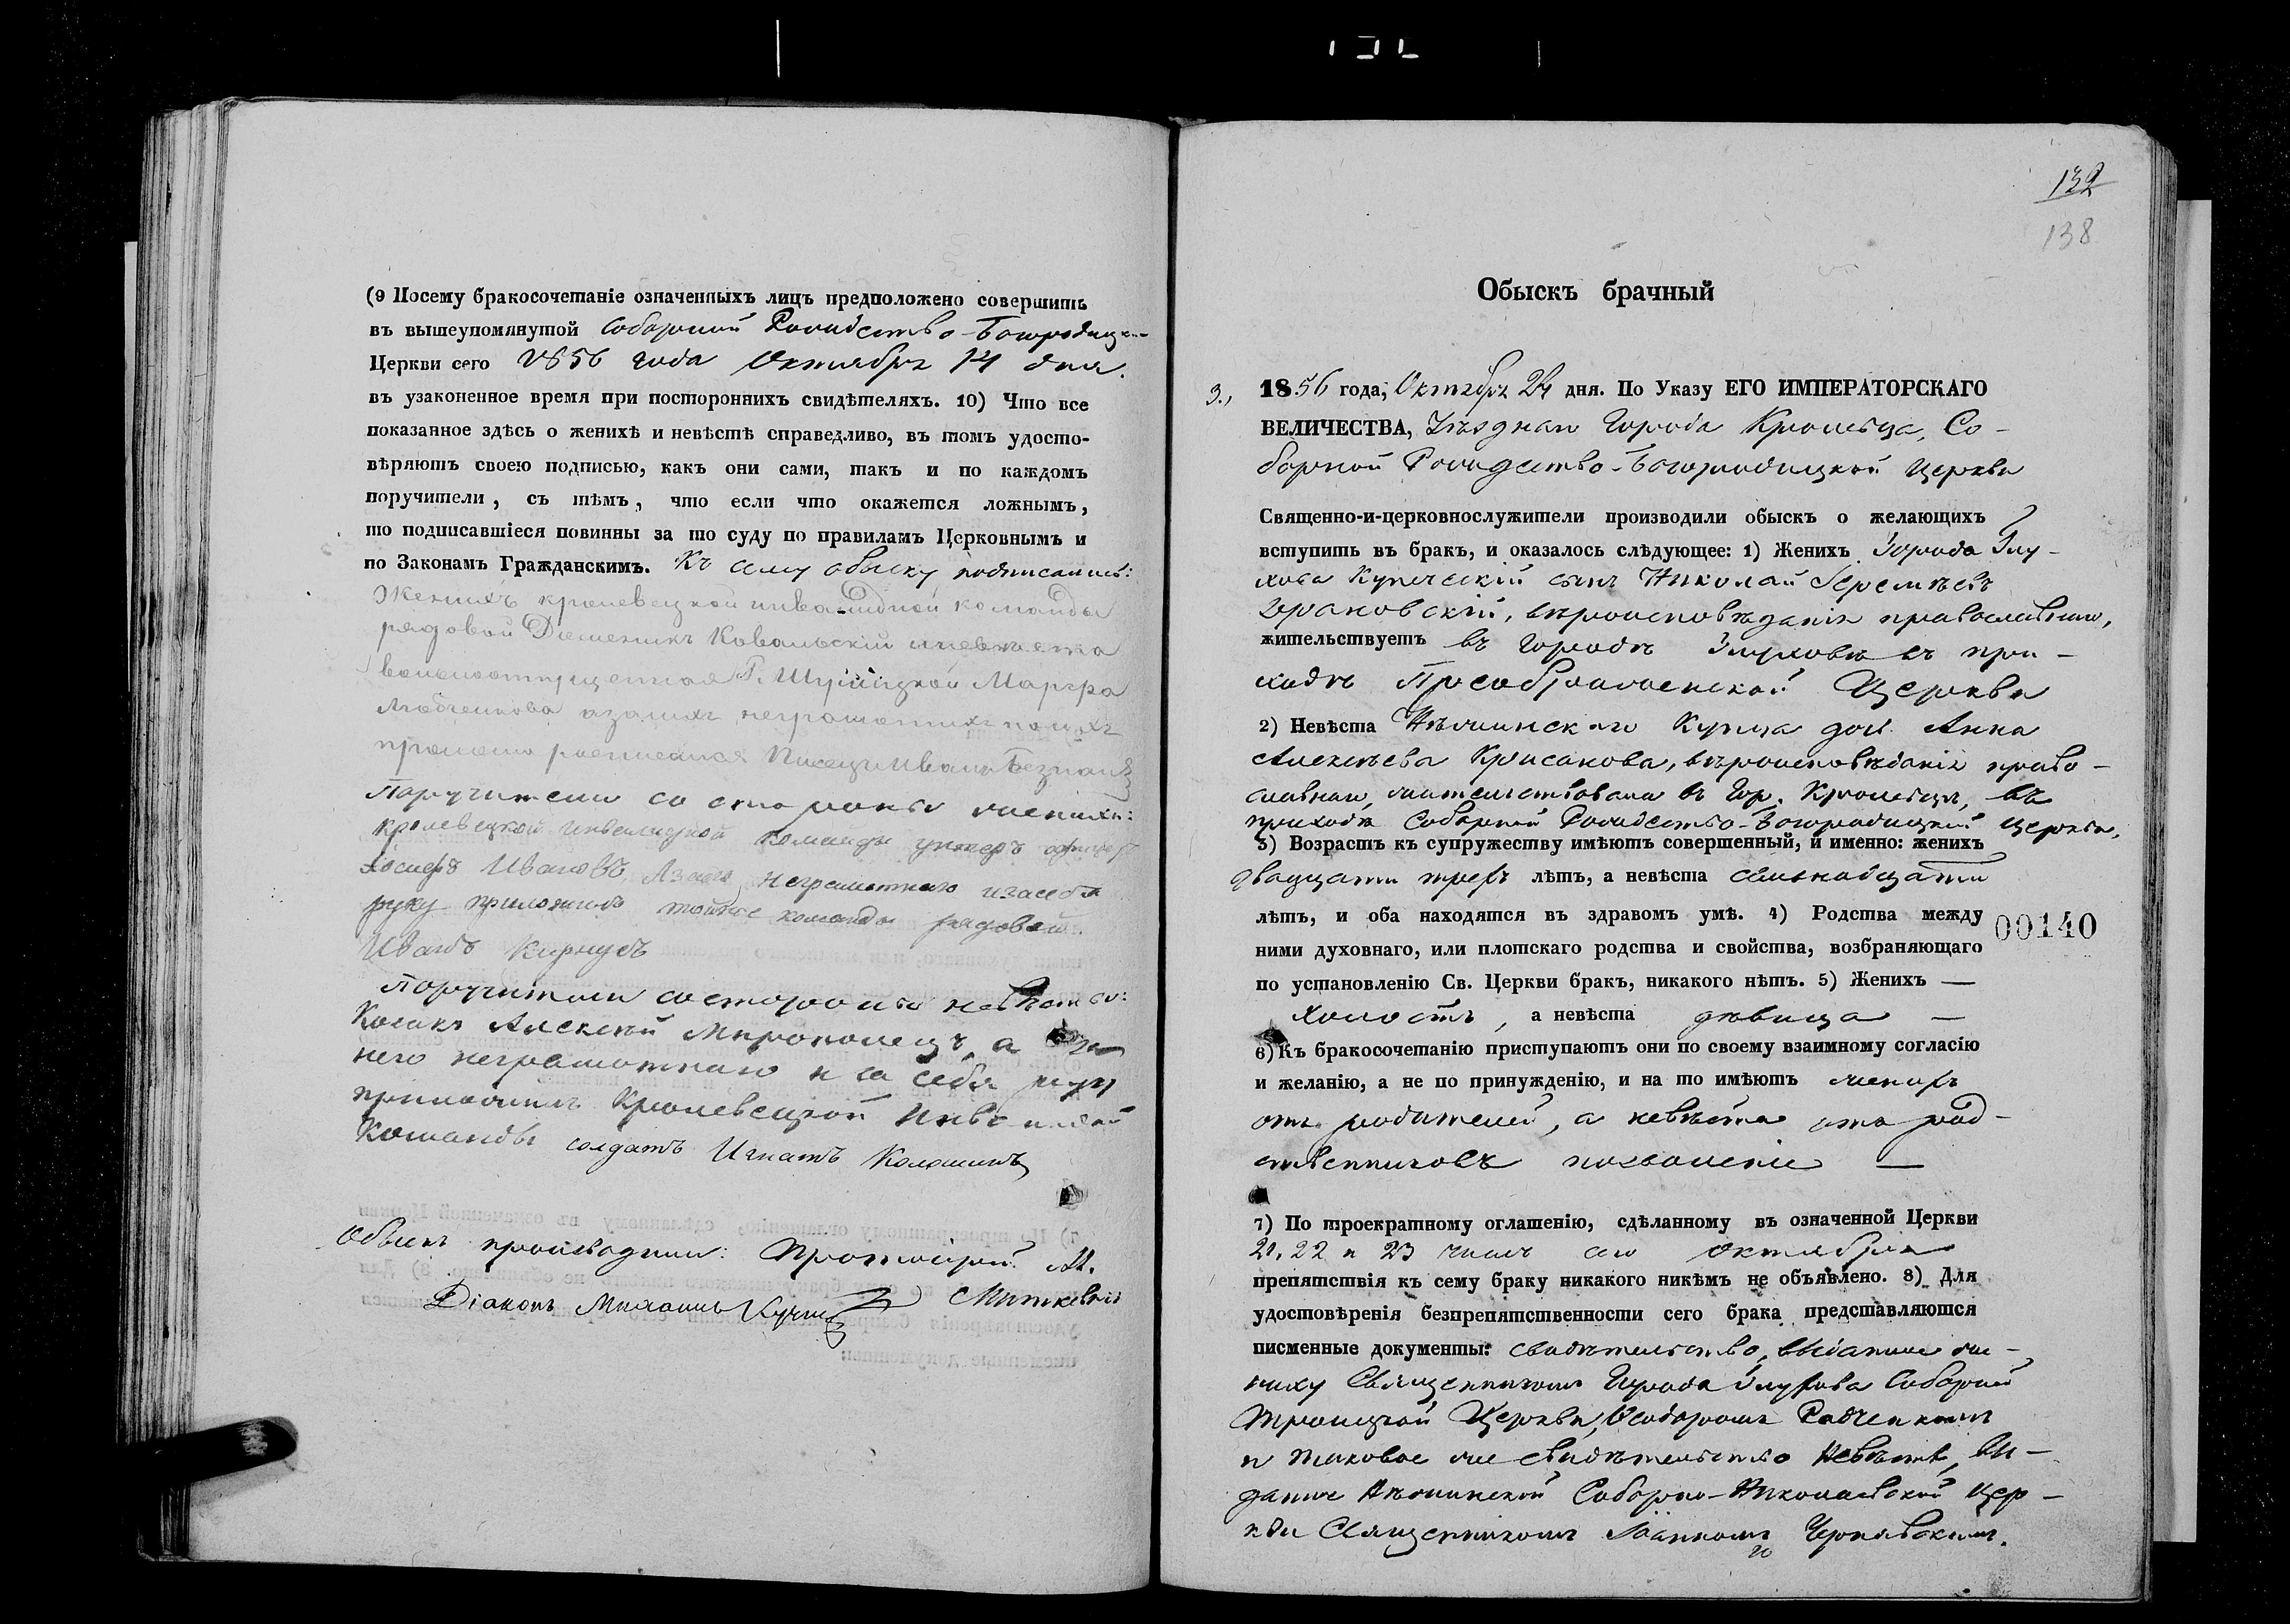 (9 Посему бракосочетаніе означенныхъ лицъ предположено совершить
въ вышеупомянутой Соборной Рождество-Богородицкой
Церкви сего 1856 года Октября 14 дня.
въ узаконенное время при постороннихъ свидѣтеляхъ. 10) Что все
показанное здѣсь о женихѣ и невѣстѣ справедливо, въ томъ удосто-
вѣряютъ своею подписью, какъ они сами, такъ и по каждомъ
поручители, съ тѣмъ, что если что окажется ложнымъ,
то подписавшіеся повинны за то суду по правиламъ Церковнымъ и
по Законамъ Гражданскимъ. Къ сему обыску подписались:
Женихъ кролевецкой инвалидной команды
рядовой Ковальскій иневѣста
вольноотпущенная Г. Марфа
неграмотныхъ поихъ
прошенію росписался Писецъ Иванъ
Поручители со стороны жениха:
кролевецкой инвалидной команды унтеръ офицеръ
Іосифъ Ивановъ, Азаго неграмотнаго изасебя
руку приложилъ тойже команды рядовой
Иванъ Кирнусъ
Поручители состороны невѣсты:
Козакъ Алексѣй Миропонецъ, а за
него неграмотнаго и за себя руку
приложилъ Кролевецкой Инвалидной
Команды солдатъ Игнатъ Калашникъ
Обыскъ производили: Протоіерей М.
Миткевичъ
Діаконъ Михаилъ
132
138
Обыскъ брачный
3., 1856 года, Октября 24 дня. По Указу ЕГО ИМПЕРАТОРСКАГО
ВЕЛИЧЕСТВА, Уѣзднаго Города Кролевца, Со-
борной Рождество-Богородицкой Церкви
Священно-и-церковнослужители производили обыскъ о желающихъ
вступить въ бракъ, и оказалось слѣдующее: 1) Женихъ Города Глу-
хова Купеческій сынъ Николай Іеремѣевъ
вѣроисповѣданія православнаго,
жительствуетъ въ Городѣ Глуховѣ въ при-
ходѣ Преображенской Церкви
2) Невѣста Нѣжинскаго Купца дочь Анна
Алексѣева Крисанова, вѣроисповѣданія право-
славнаго, жительствовала въ Гор. Кролевцѣ, въ
приходѣ Соборной Рождество-Богородицкой Церкви,
3) Возрастъ къ супружеству имѣютъ совершенный, и именно: женихъ
двадцати трехъ лѣтъ, а невѣста семьнадцати
лѣтъ, и оба находятся въ здравомъ умѣ. 4) Родства между
00140
ними духовнаго, или плотскаго родства и свойства, возбраняющаго
по установленію Св. Церкви бракъ, никакого нѣтъ. 5) Женихъ —
холостъ, а невѣста дѣвица —
6) Къ бракосочетанію приступаютъ они по своему взаимному согласію
и желанію, а не по принужденію, и на то имѣютъ женихъ
отъ родителей, а невѣста отъ род-
ственниковъ позволеніе —
7) По троекратному оглашенію, сдѣланному въ означенной Церкви
21, 22 и 23 чиселъ сего октября
препятствія къ сему браку никакого никѣмъ не объявлено. 8) Для
удостовѣренія безпрепятственности сего брака представляются
писменные документы: свидѣтельство, выданное же-
ниху Священникомъ Города Глухова Соборной
Троицкой Церкви, Ѳеодоромъ Радченкомъ
и таковое же свидѣтельство Невѣстѣ, вы-
данное Нѣжинской Соборно-Николаевской Цер-
кви Священникомъ Іоанномъ Чернявскимъ.